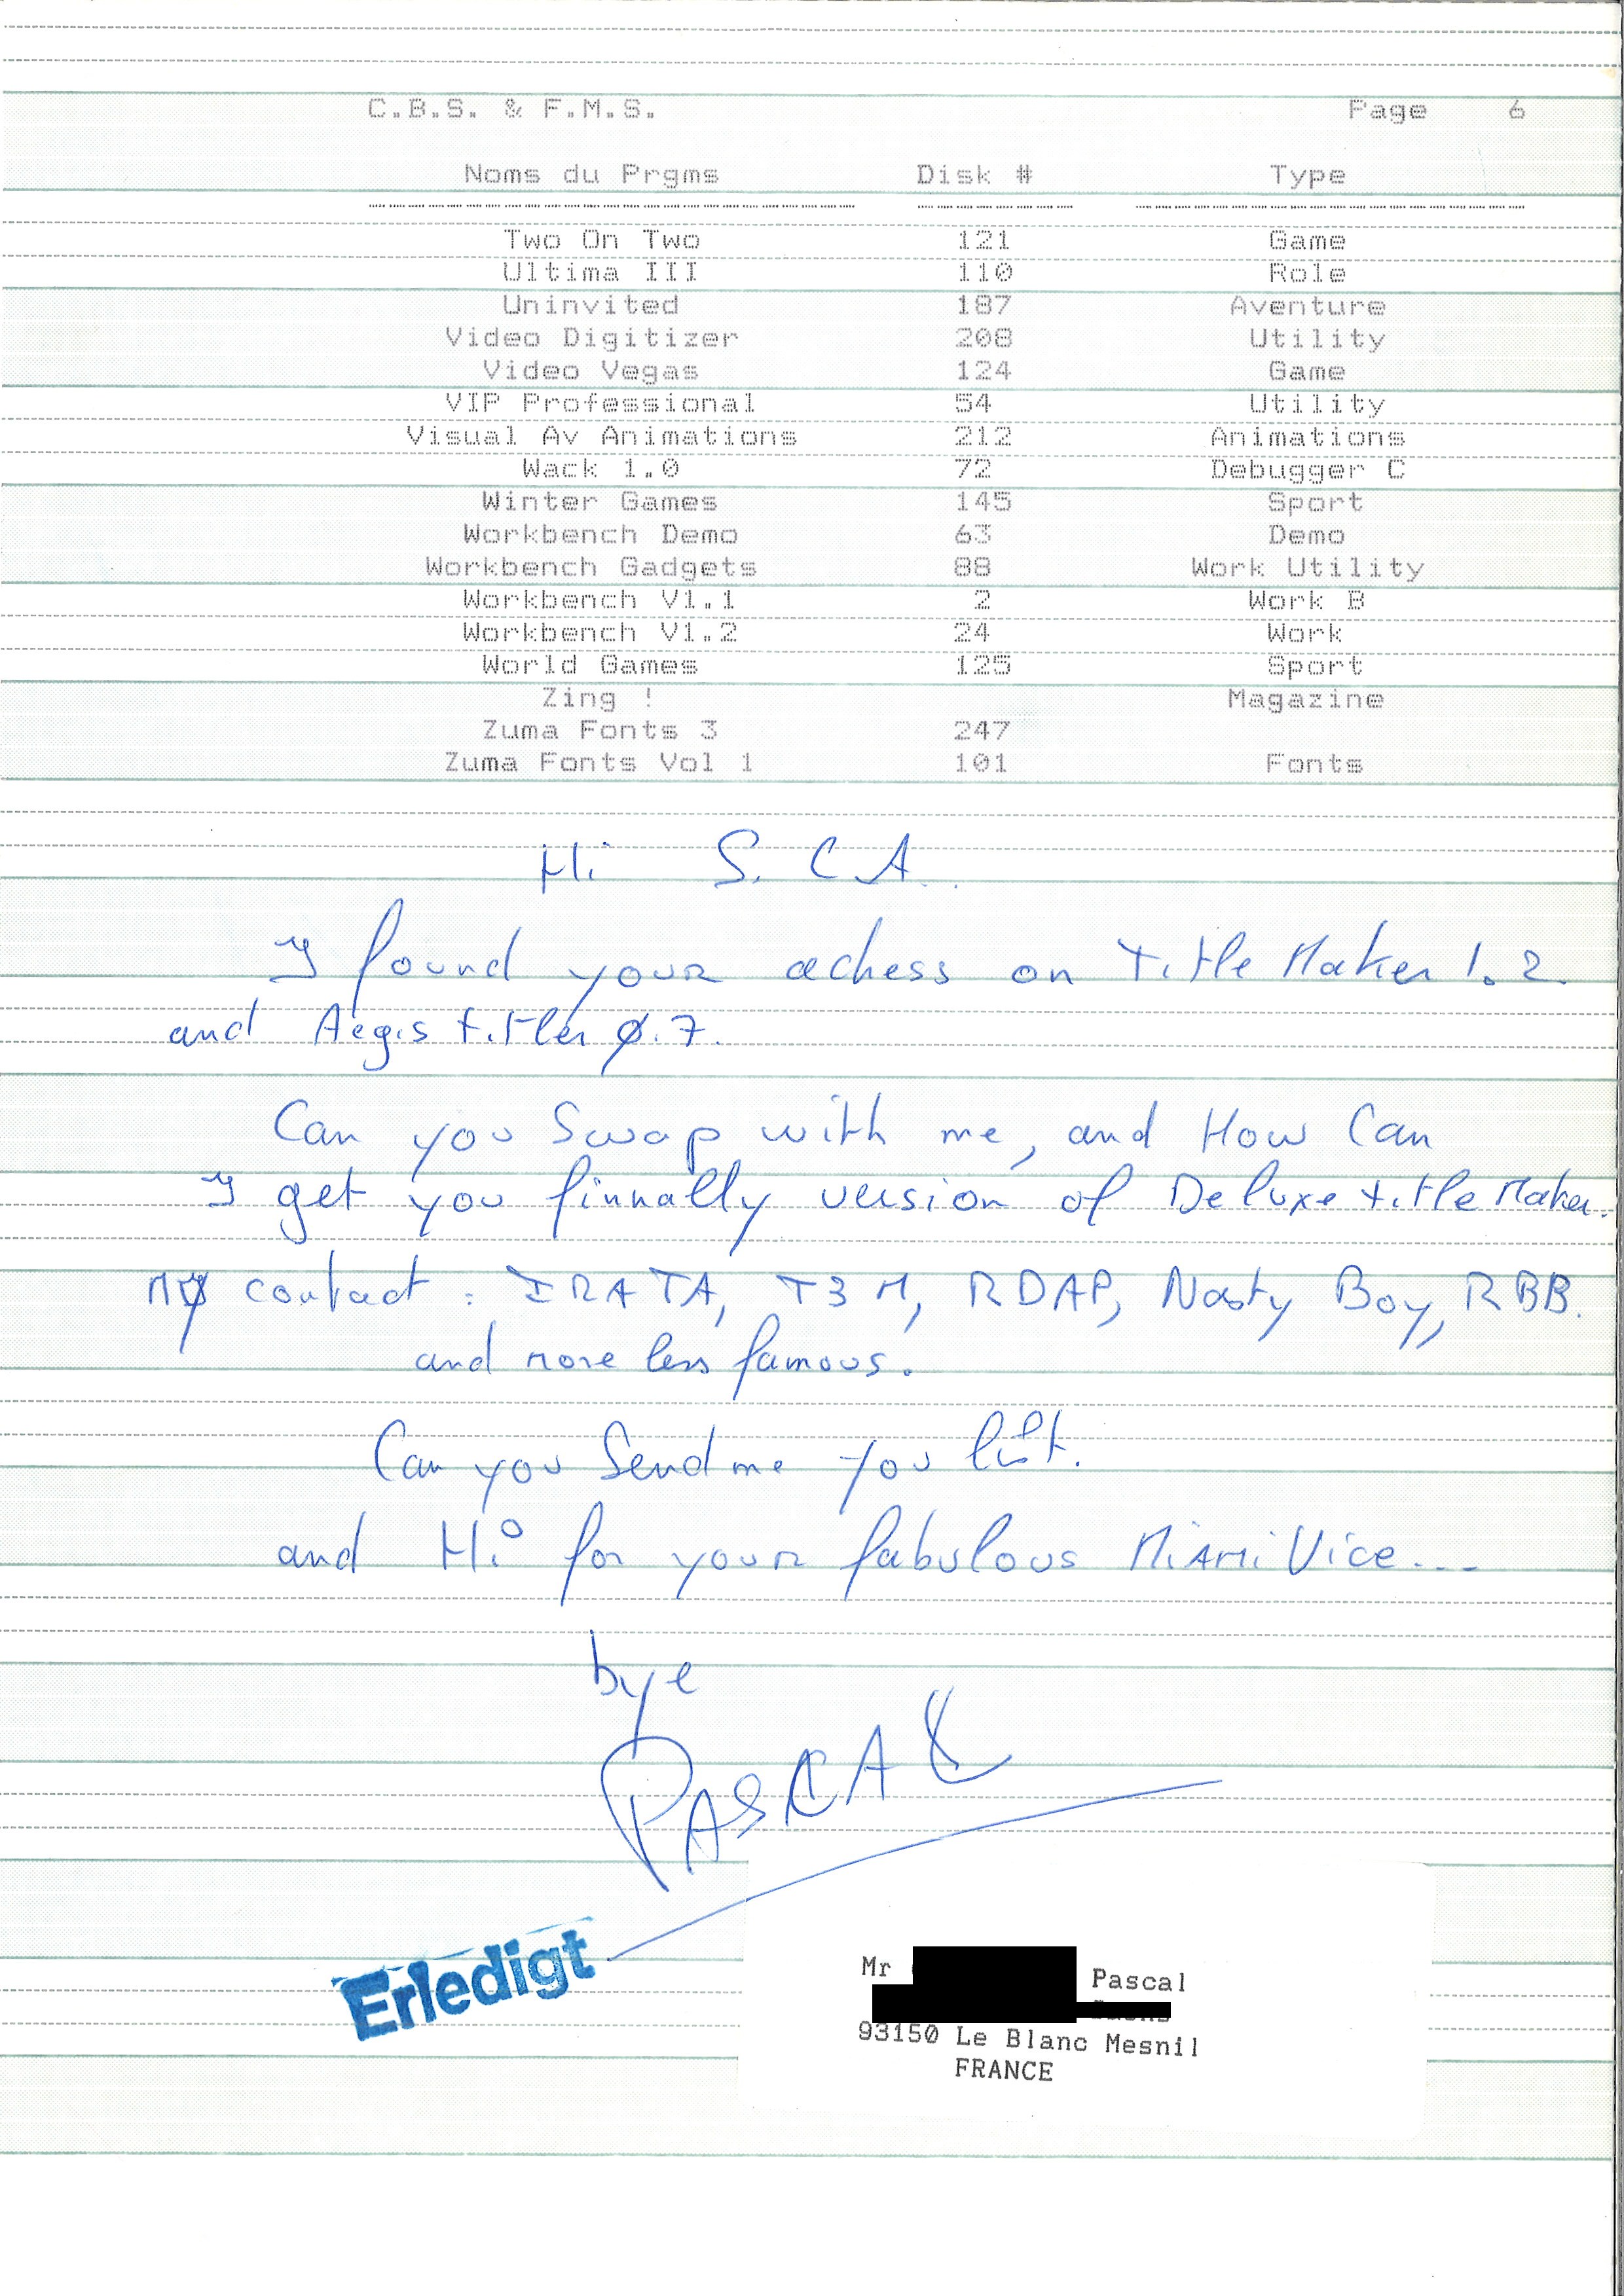 C.B.S. & F.M.S. Page 6
Noms du Prgms Disk # Type
Two On Two 121 Game
Ultima III 110 Role
Uninvited 187 Aventure
Video Digitizer 208 Utility
Video Vegas 124 Game
VIP Professional 54 Utility
Visual Av Animations 212 Animations
Wack 1.0 72 Debugger C
Winter Games 145 Sport
Workbench Demo 63 Demo
Workbench Gadgets 88 Work Utility
Workbench V1.1 2 Work B
Workbench V1.2 24 Work
World Games 125 Sport
Zing ! Magazine
Zuma Fonts 3 247
Zuma Fonts Vol 1 101 Fonts
Hi S. C A.
I found your adress on Title Maker 1.2
and Aegis titler 0.7.
Can you Swap with me, and How Can
I get you finnally version of Deluxe title Maker.
My contact : IRATA, T3M, RDAP, Nasty Boy, RBB.
and more less famous.
Can you Send me you list.
and Hi for your fabulous Miami Vice...
bye
PASCAL
Erledigt
Mr Pascal
93150 Le Blanc Mesnil
FRANCE